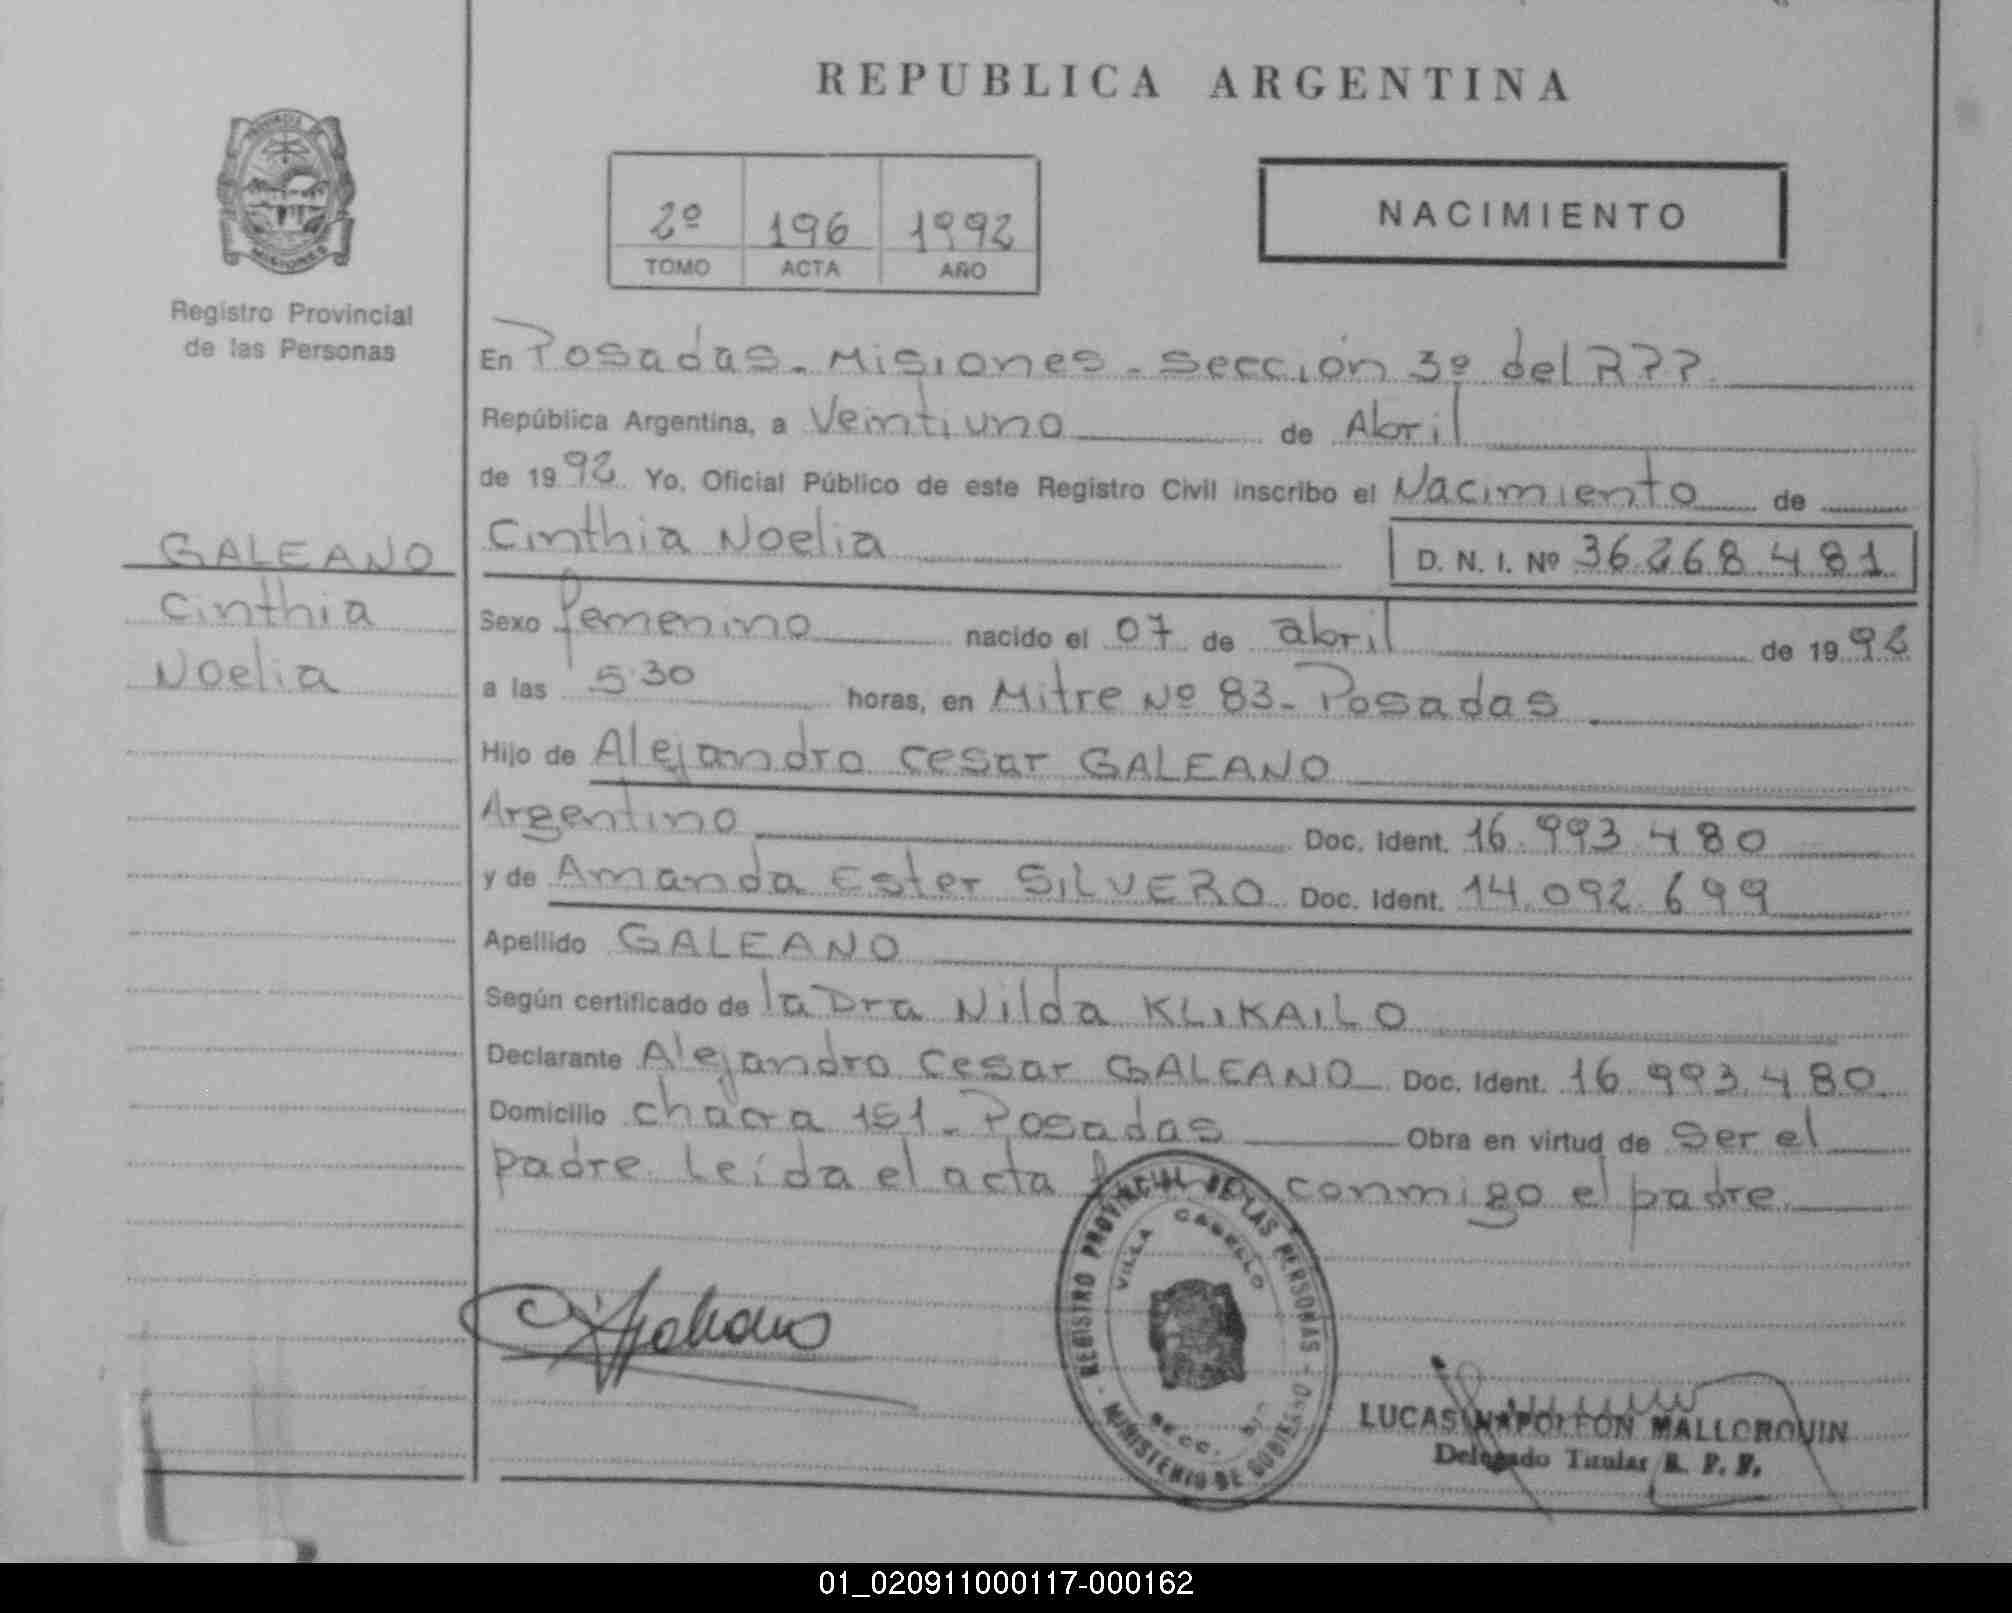 REPUBLICA ARGENTINA
PROVINCIA DE
MISIONES
Registro Provincial
de las Personas
2º 196 1992
TOMO ACTA AÑO
NACIMIENTO
GALEANO
Cinthia
Noelia
En Posadas - Misiones - Sección 3º del RPP.
República Argentina, a Veintiuno de Abril
de 1992 Yo, Oficial Público de este Registro Civil inscribo el Nacimiento de
Cinthia Noelia D. N. I. Nº 36.268.481
Sexo femenino nacido el 07 de abril de 1992
a las 5.30 horas, en Mitre Nº 83 - Posadas
Hijo de Alejandro Cesar GALEANO
Argentino Doc. Ident. 16.993.480
y de Amanda Ester SILVERO Doc. Ident. 14.092.699
Apellido GALEANO
Según certificado de la Dra Nilda KLIKAILO
Declarante Alejandro Cesar GALEANO Doc. Ident. 16.993.480
Domicilio chacra 151 - Posadas Obra en virtud de Ser el
padre. Leída el acta conmigo el padre.
REGISTRO PROVINCIAL DE LAS PERSONAS - MINISTERIO DE GOBIERNO -
VILLA CABELLO
SECC.
LUCAS NAPOLEON MALLORQUIN
Delegado Titular R. P. P.
01_020911000117-000162